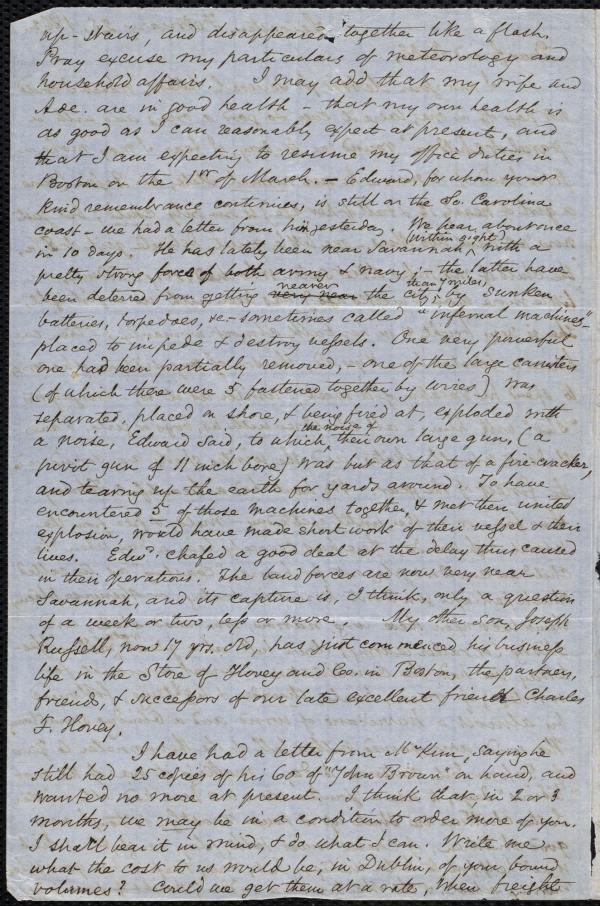 up-stairs, and disappeared together like a flash.
Pray excuse my particulars of meteorology and
household affairs. I may add that my wife and
Ade. are in good health – that my own health is
as good as I can reasonably expect at present, and
that I am expecting to resume my office duties in
Boston on the 1st of March. – Edward, for whom your
kind remembrance continues, is still on the So. Carolina
coast – we had a letter from him yesterday. We hear about once
in 10 days. He has lately been near Savannah (within eight) with a
pretty strong force of both army & navy; – the latter have
been deterred from getting very near nearer the city, than 7 miles, by sunken
batteries, torpedoes, &c. – sometimes called "infernal machines,"
placed to impede & destroy vessels. One very powerful
one had been partially removed, – one of the large canisters
(of which there were 5 fastened together by wires) was
separated, placed on shore, & being fired at, exploded with
a noise, Edward said, to which the noise of their own large gun, (a
pivot gun of 11 inch bore) was but as that of a fire-cracker,
and tearing up the earth for yards around. To have
encountered 5 of those machines together, & met their united
explosion, would have made short work of their vessel & their
lives. Edwd. chafed a good deal at the delay thus caused
in their operations. The land forces are now very near
Savannah, and its capture is, I think, only a question
of a week or two, less or more. My other son, Joseph
Russell, now 17 yrs. old, has just commenced his business
life in the Store of Hovey and Co. in Boston, the partners,
friends, & successors of our late excellent friend Charles
F. Hovey.
I have had a letter from McKim, saying he
still had 25 copies of his 60 of "John Brown" on hand, and
wanted no more at present. I think that in 2 or 3
months, we may be in a condition to order more of you.
I shall bear it in mind, & do what I can. Write me
what the cost to us would be, in Dublin, of your bound
volumes? Could we get them at a rate, when freight